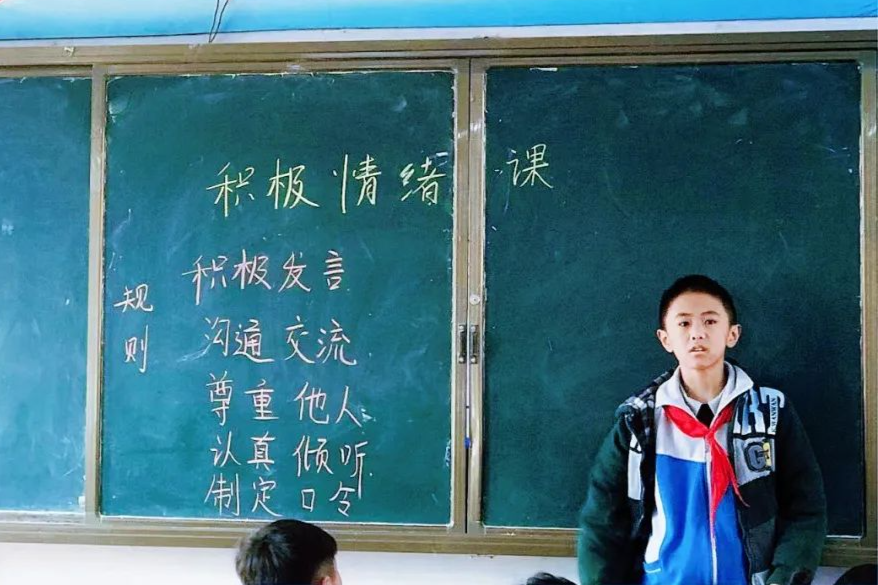 积极情绪课
规则
积极发言
沟通交流
尊重他人
认真倾听
制定口令